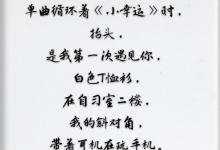 单曲循环着《小幸运》时，
抬头，
是我第一次遇见你，
白色T恤衫，
在自习室二楼，
我的斜对角，
带着耳机在玩手机。